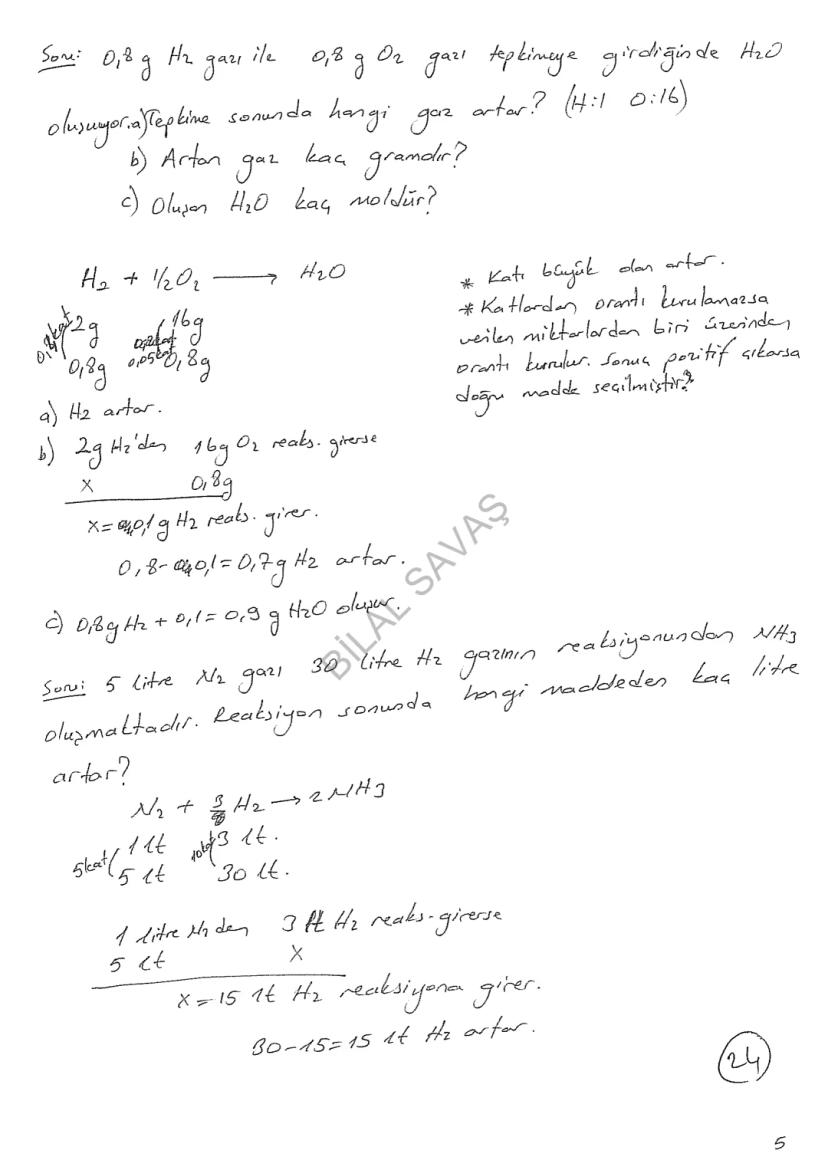 Soru: 0,8 g H2 gazı ile 0,8 g O2 gazı tepkimeye girdiğinde H2O
oluşuyor. a) Tepkime sonunda hangi gaz artar? (H:1 O:16)
b) Artan gaz kaç gramdır?
c) Oluşan H2O kaç moldür?
H2 + 1/2O2 → H2O
2g 16g
0,8g 0,05kat 0,8g
* Katı büyük olan artar.
* Katlardan orantı kurulamazsa
verilen miktarlardan biri üzerinden
orantı kurulur. Sonuç pozitif çıkarsa
doğru madde seçilmiştir.
a) H2 artar.
b) 2g H2'den 16g O2 reaks. girerse
x 0,8g
x = 0,1 g H2 reaks. girer.
0,8 - 0,1 = 0,7 g H2 artar.
c) 0,8g H2 + 0,1 = 0,9 g H2O oluşur.
BİLAL SAVAŞ
Soru: 5 litre N2 gazı 30 litre H2 gazının reaksiyonundan NH3
oluşmaktadır. Reaksiyon sonunda hangi maddeden kaç litre
artar?
N2 + 3 H2 → 2NH3
5kat 1 lt 10kat 3 lt.
5 lt 30 lt.
1 litre N2 den 3 lt H2 reaks. girerse
5 lt x
x = 15 lt H2 reaksiyona girer.
30-15=15 lt H2 artar.
24
5